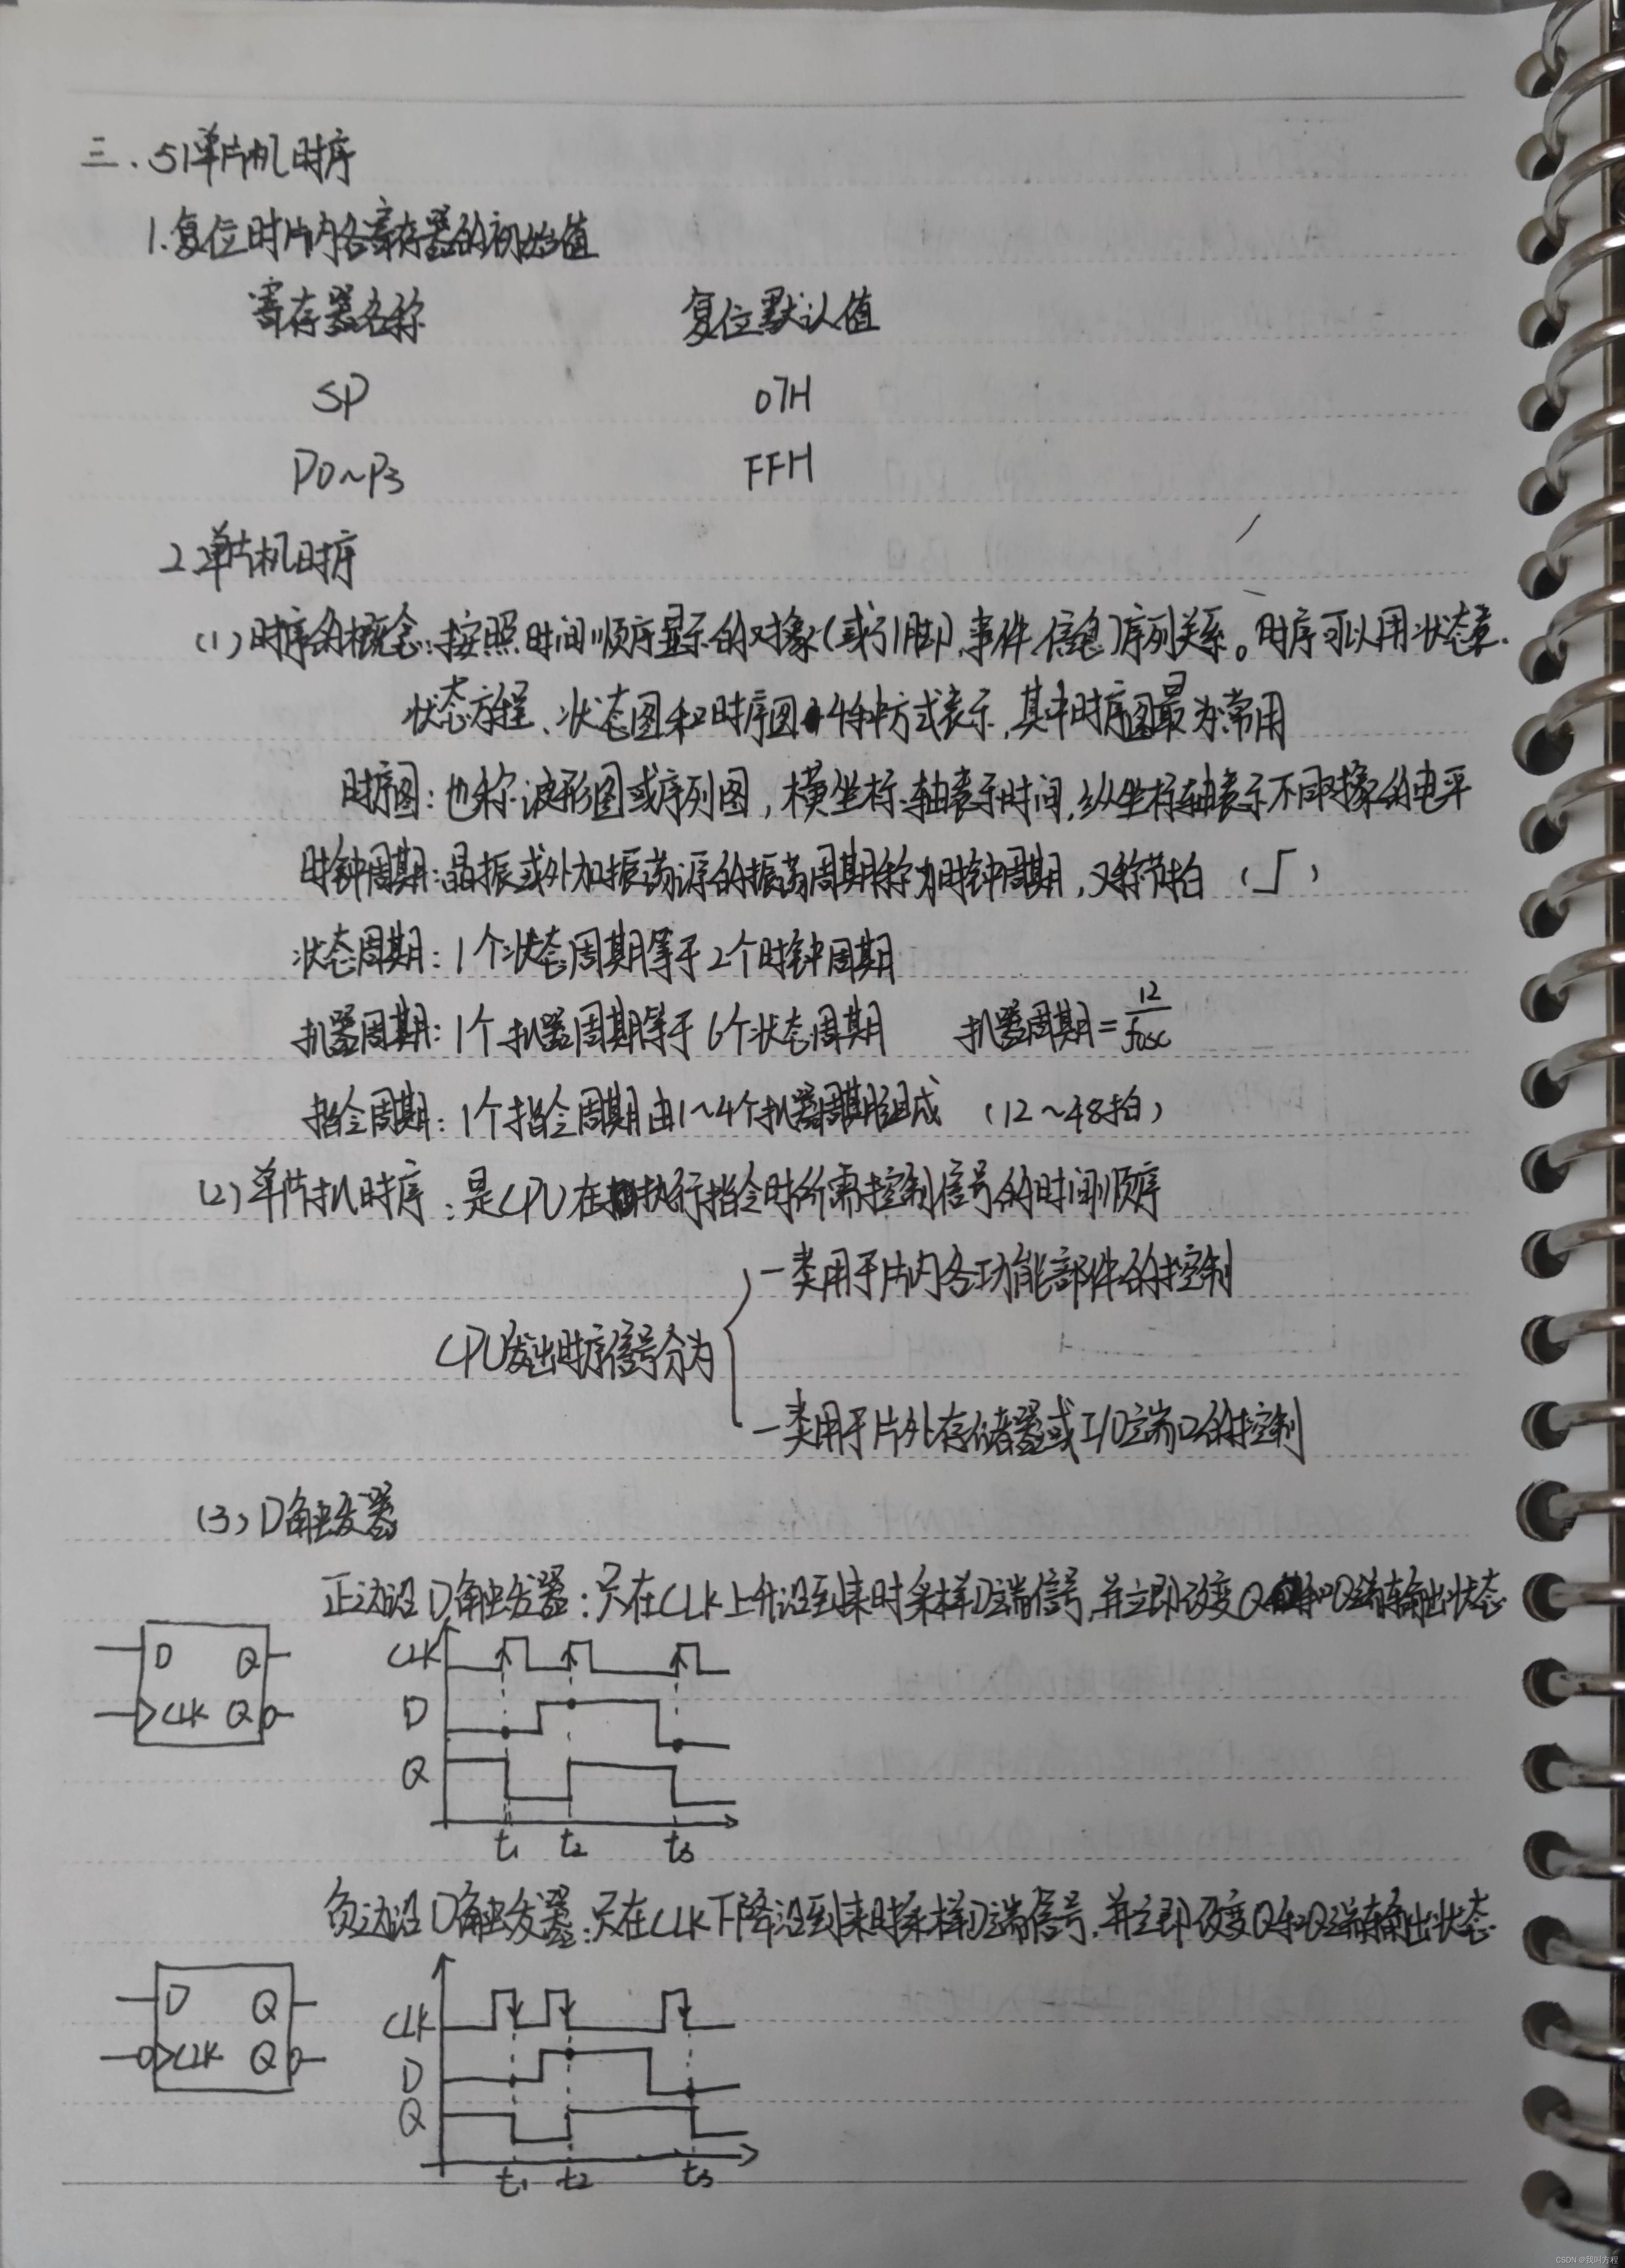 三、51单片机时序
1.复位时片内各寄存器的初始值
寄存器名称 复位默认值
SP 07H
P0~P3 FFH
2.单片机时序
(1)时序的概念:按照时间顺序显示的对象(或引脚、事件、信息)序列关系。时序可以用状态表、
状态方程、状态图和时序图4种方式表示,其中时序图最为常用
时序图:也称波形图或序列图,横坐标轴表示时间,纵坐标轴表示不同对象的电平
时钟周期:晶振或外加振荡源的振荡周期称为时钟周期,又称节拍 ( )
状态周期:1个状态周期等于2个时钟周期
机器周期:1个机器周期等于6个状态周期 机器周期=12/fosc
指令周期:1个指令周期由1~4个机器周期组成 (12~48拍)
(2)单片机时序:是CPU在执行指令时所需控制信号的时间顺序
一类用于片内各功能部件的控制
CPU发出时序信号分为
一类用于片外存储器或I/O端口的控制
(3)D触发器
正边沿D触发器:只在CLK上升沿到来时采样D端信号,并立即改变Q和Q端输出状态
D Q
CLK Q
CLK
D
Q
t1 t2 t3
负边沿D触发器:只在CLK下降沿到来时采样D端信号,并立即改变Q和Q端输出状态
D Q
CLK Q
CLK
D
Q
t1 t2 t3
CSDN @我叫方程